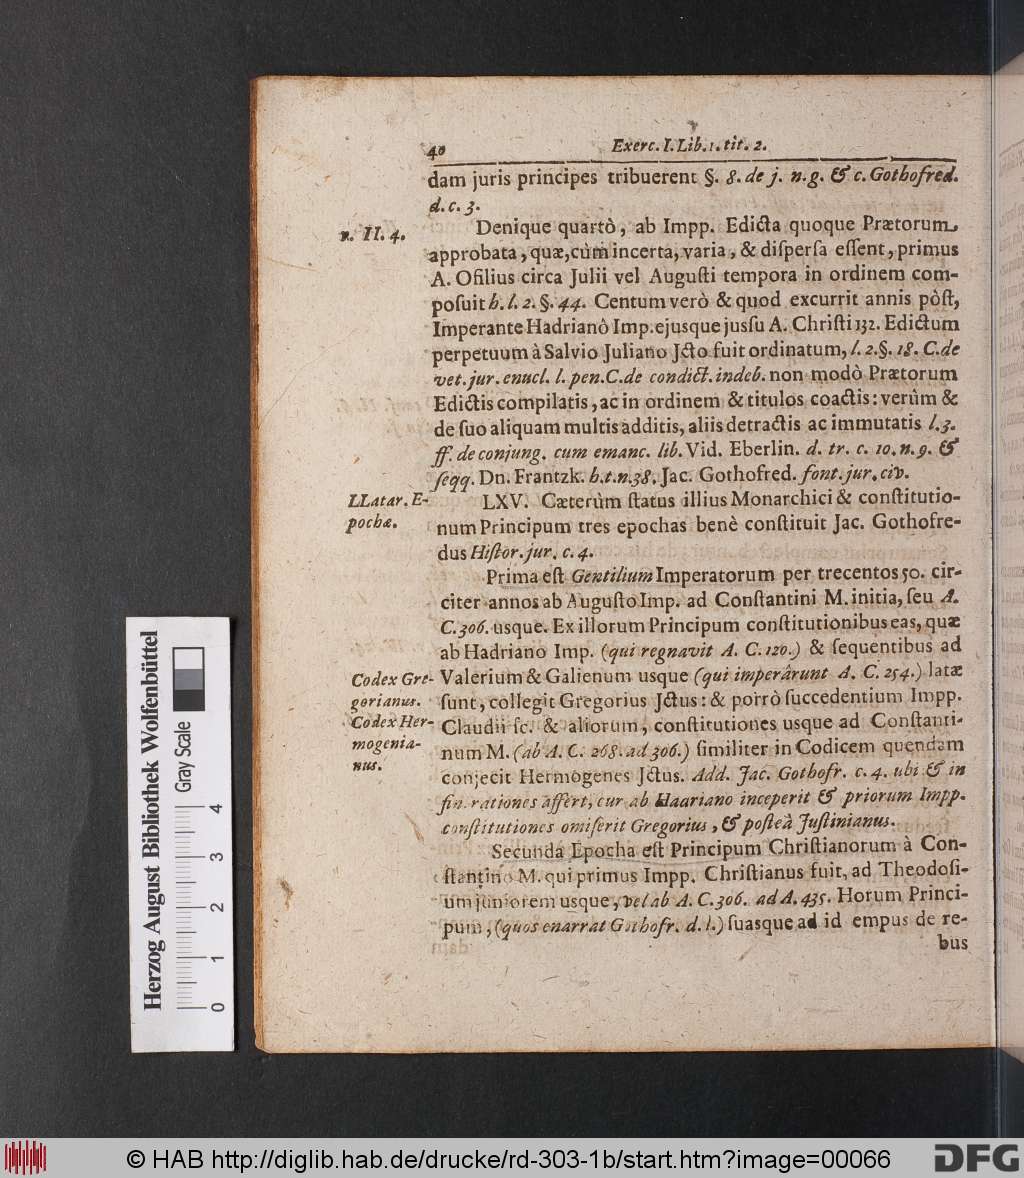 40 Exerc. I. Lib. 1. tit. 2.
dam juris principes tribuerent §. 8. de j. n. g. & c. Gothofred.
d. c. 3.
n. II. 4.
Denique quartò, ab Impp. Edicta quoque Prætorum
approbata, quæ, cùm incerta, varia, & dispersa essent, primus
A. Ofilius circa Julii vel Augusti tempora in ordinem com-
posuit h. l. 2. §. 44. Centum verò & quod excurrit annis pòst,
Imperante Hadrianô Imp. ejusque jussu A. Christi 132. Edictum
perpetuum à Salvio Juliano Jcto fuit ordinatum, l. 2. §. 18. C. de
vet. jur. enucl. l. pen. C. de condict. indeb. non modò Prætorum
Edictis compilatis, ac in ordinem & titulos coactis: verûm &
de suo aliquam multis additis, aliis detractis ac immutatis l. 3.
ff. de conjung. cum emanc. lib. Vid. Eberlin. d. tr. c. 10. n. 9. &
seqq. Dn. Frantzk. h. t. n. 38. Jac. Gothofred. font. jur. civ.
LLatar. E-
pochæ.
LXV. Cæterùm status illius Monarchici & constitutio-
num Principum tres epochas benè constituit Jac. Gothofre-
dus Histor. jur. c. 4.
Prima est Gentilium Imperatorum per trecentos 50. cir-
citer annos ab Augusto Imp. ad Constantini M. initia, seu A.
C. 306. usque. Ex illorum Principum constitutionibus eas, quæ
ab Hadriano Imp. (qui regnavit A. C. 120.) & sequentibus ad
Codex Gre-
gorianus.
Codex Her-
mogenia-
nus.
Valerium & Galienum usque (qui imperârunt A. C. 254.) latæ
sunt, collegit Gregorius Jctus: & porrò succedentium Impp.
Claudii sc. & aliorum, constitutiones usque ad Constanti-
num M. (ab A. C. 268. ad 306.) similiter in Codicem quendam
conjecit Hermogenes Jctus. Add. Jac. Gothofr. c. 4. ubi & in
fin. rationes affert, cur ab Haariano inceperit & priorum Impp.
constitutiones omiserit Gregorius, & posteà Justinianus.
Secunda Epocha est Principum Christianorum à Con-
stantino M. qui primus Impp. Christianus fuit, ad Theodosi-
um juniorem usque, vel ab A. C. 306. ad A. 435. Horum Princi-
pum, (quos enarrat Gothofr. d. l.) suasque ad id empus de re-
bus
Herzog August Bibliothek Wolfenbüttel
Gray Scale
0 1 2 3 4
© HAB http://diglib.hab.de/drucke/rd-303-1b/start.htm?image=00066
DFG